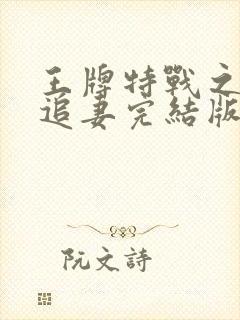 王牌特戰之
追妻完結版
阮文詩